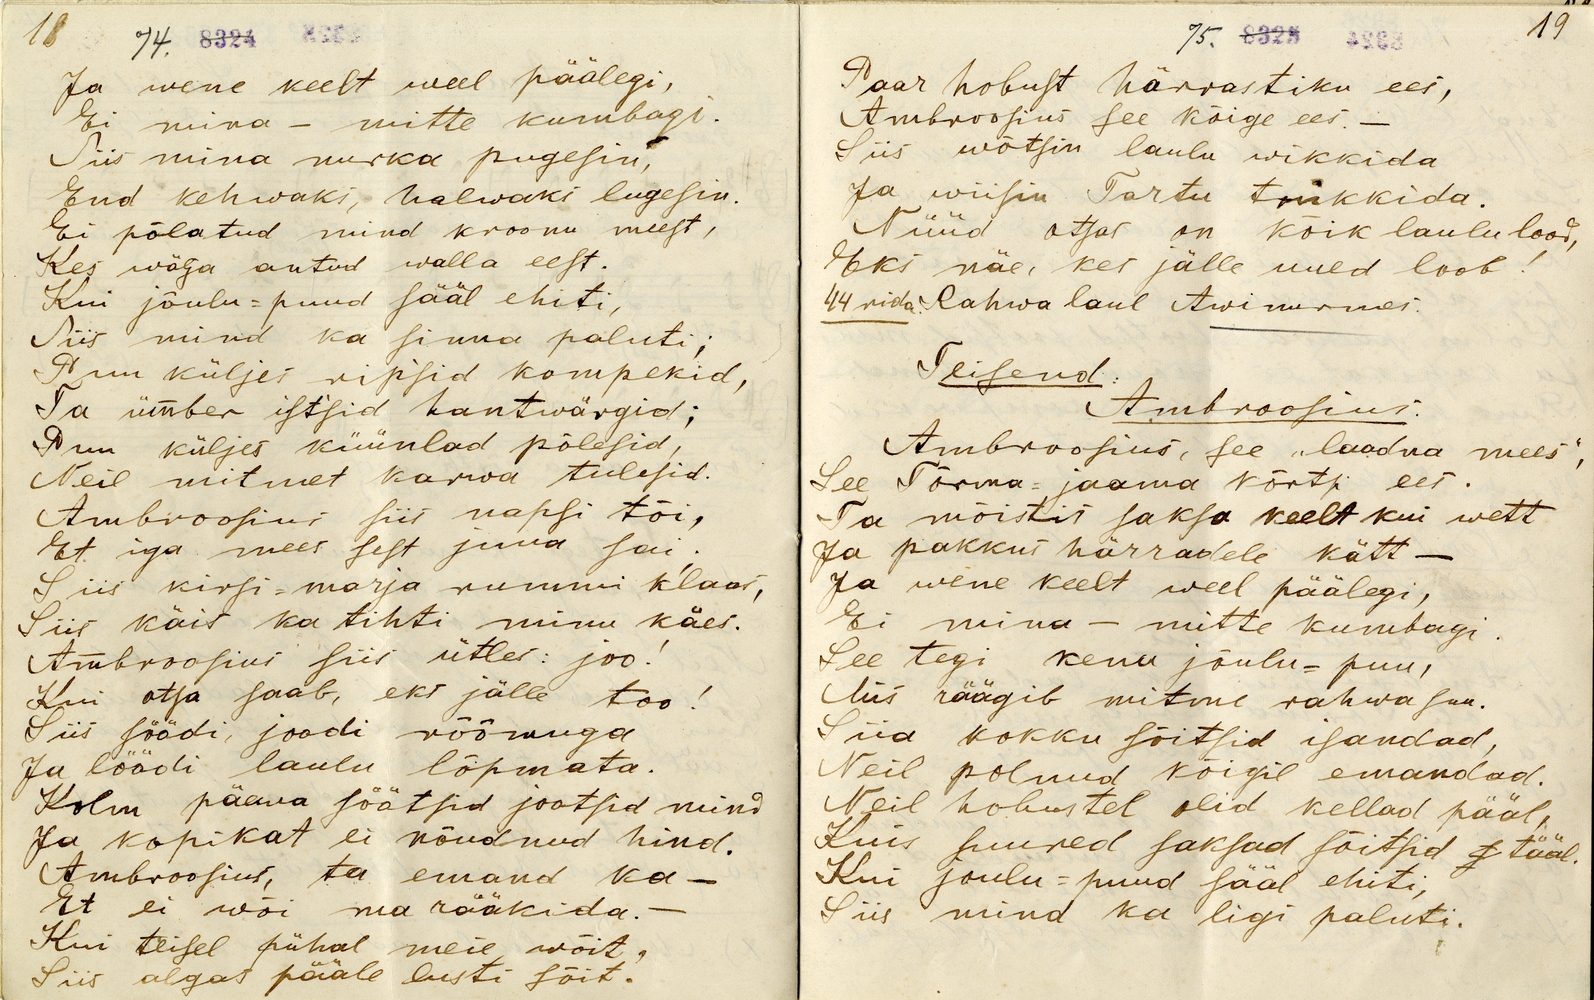 18
74. 8324
Ja wene keelt weel päälegi,
Ei mina – mitte kumbagi.
Siis mina nurka pugesin,
End kehwaks, halwaks lugesin.
Ei põlatud mind kroonu meest,
Kes wäga antud walla eest.
Kui jõulu=puud sääl ehiti,
Siis mind ka sinna paluti;
Puu küljes ripsid kompekid,
Ta ümber istsid hantwärgid;
Puu küljes küünlad põlesid,
Neil mitmet karwa tulesid.
Ambroosius siis napsi tõi,
Et iga mees sest juua sai.
Siis kirsi=marja rummi klaas,
Siis käis ka tihti minu käes.
Ambroosius siis ütles: joo!
Kui otsa saab, eks jälle too!
Siis söödi, joodi rõõmuga
Ja löödi laulu lõpmata.
Kolm päewa söötsid jootsid mind
Ja kopikat ei nõudnud hind.
Ambroosius, ta emand ka –
Et ei wõi ma rääkida. –
Kui teisel pühal meie wõit,
Siis algas pääle lusti sõit.
19
75. 8325
Paar hobust härrastiku ees,
Ambroosius see kõige ees. –
Siis wõtsin laulu wikkida
Ja wiisin Tartu trükkida.
Nüüd otsas on kõik laulu lood,
Eks näe, kes jälle uued loob!
44 rida. Rahwa laul Awinurmes.
Teisend:
Ambroosius.
Ambroosius, see „laadna mees“,
See Tõrma=jaama kõrtsi ees.
Ta mõistis saksa keelt kui wett
Ja pakkus härradele kätt –
Ja wene keelt weel päälegi,
Ei mina – mitte kumbagi.
See tegi kena jõulu=puu,
Mis räägib mitme rahwa suu.
Siia kokku sõitsid isandad,
Neil polnud kõigil emandad.
Neil hobustel olid kellad pääl,
Kuis suured saksad sõitsid tääl.
Kui joulu=puud sääl ehiti,
Siis mind ka ligi paluti.